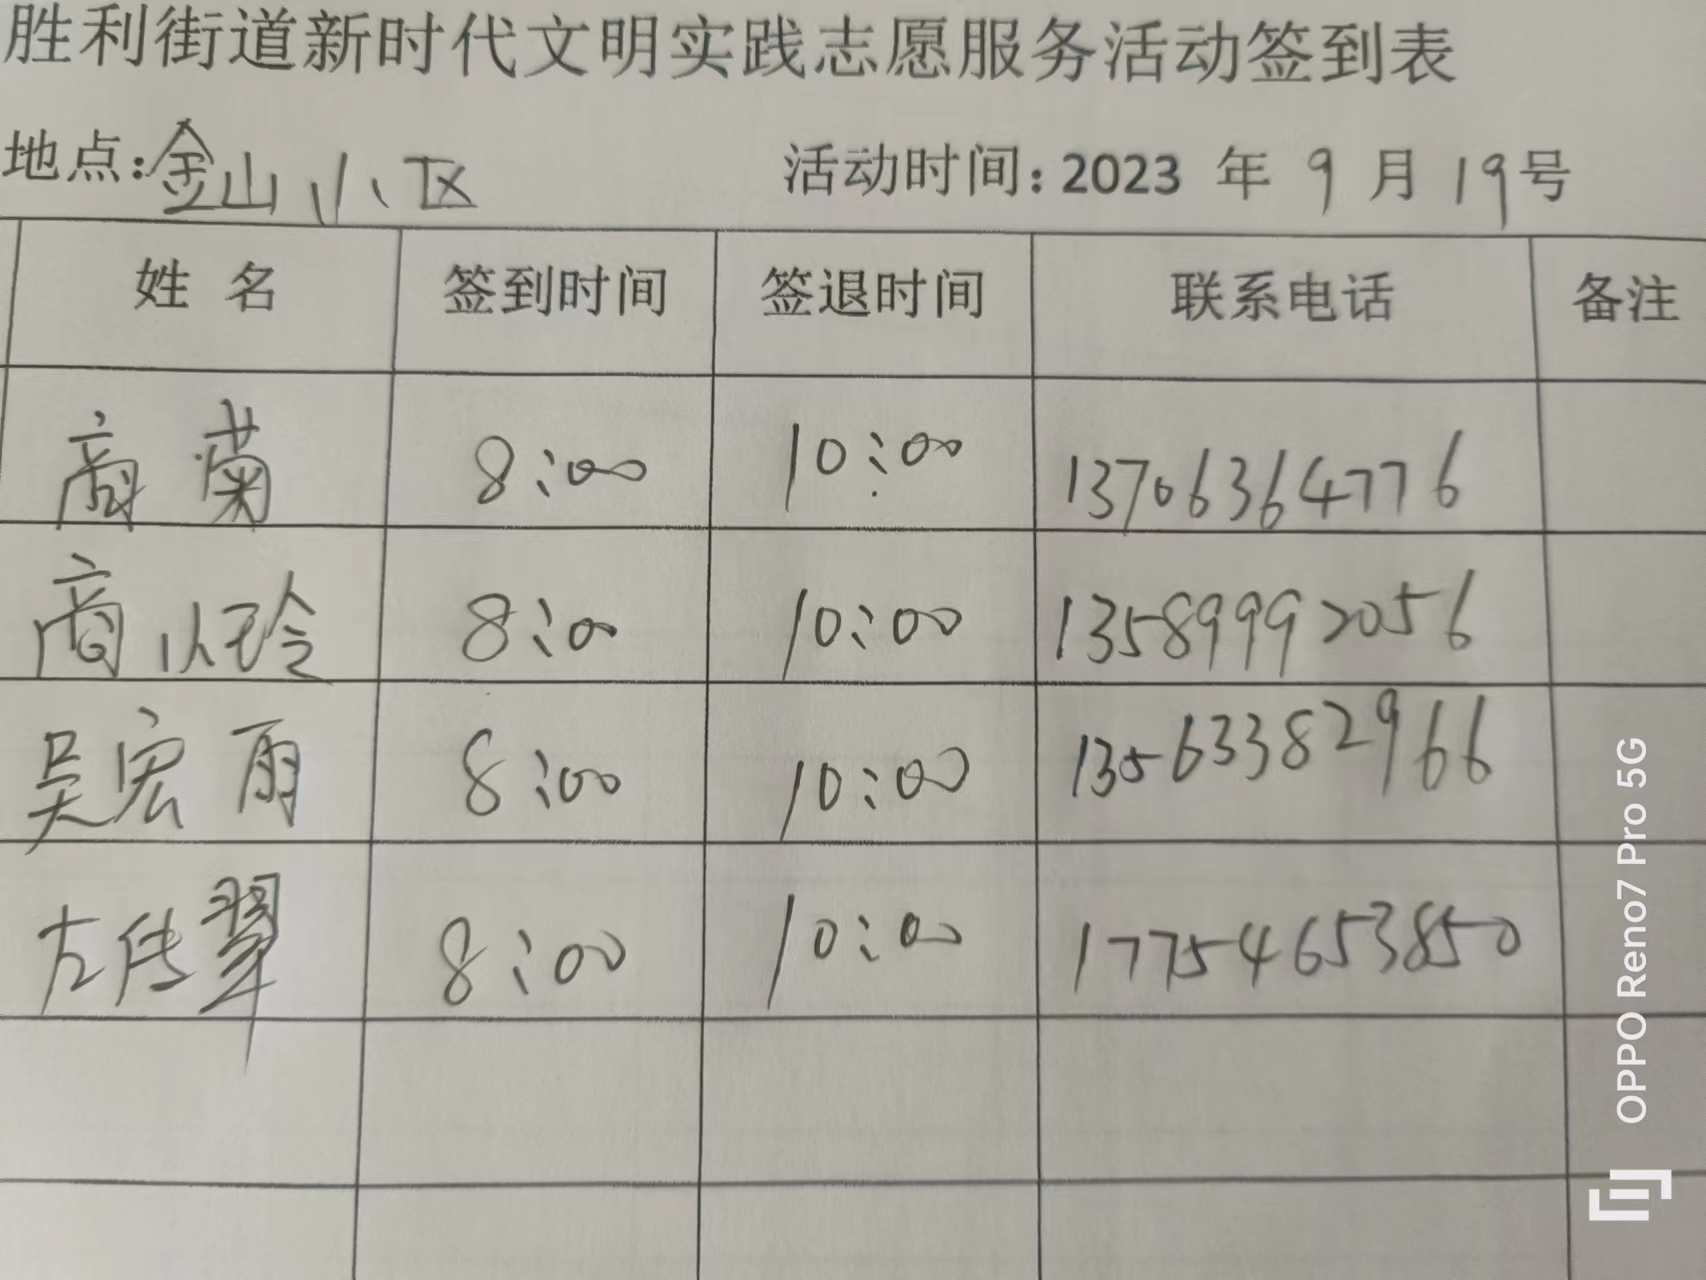 胜利街道新时代文明实践志愿服务活动签到表
地点:金山小区 活动时间:2023 年 9 月 19号
姓 名 签到时间 签退时间 联系电话 备注
商菊 8:00 10:00 13706364776
商以玲 8:00 10:00 13589992056
吴宏雨 8:00 10:00 13563382966
左传翠 8:00 10:00 17754653850
OPPO Reno7 Pro 5G